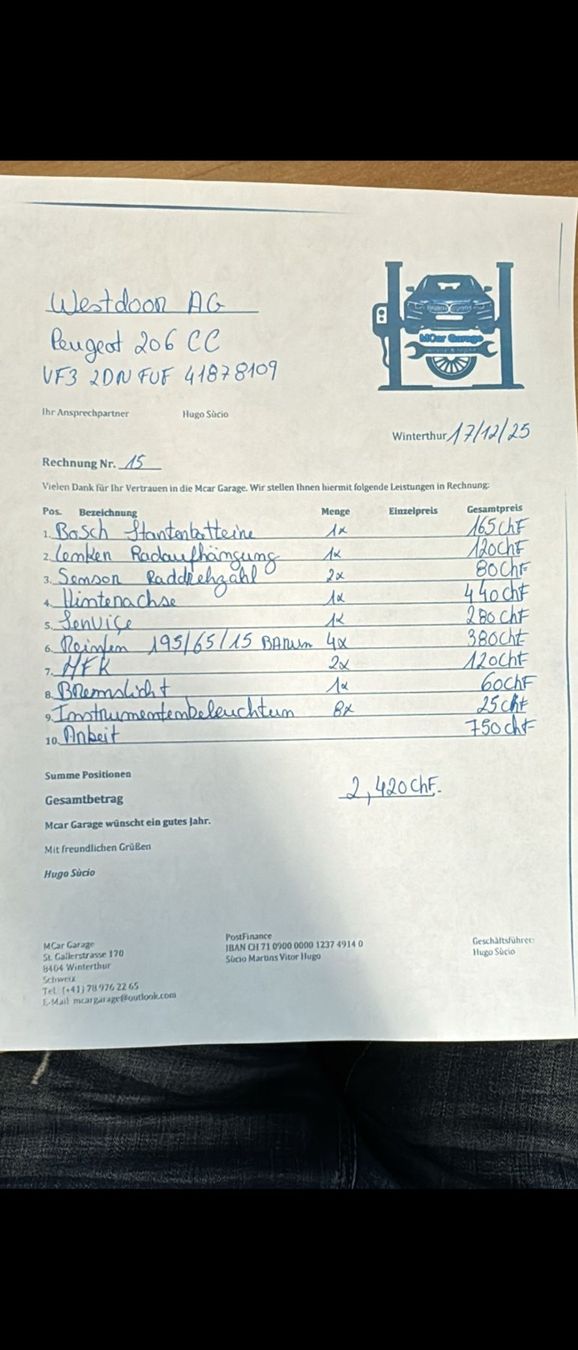 MCar Garage
Westdoor AG
Peugeot 206 CC
VF3 2DN FUF 41878109
Ihr Ansprechpartner Hugo Sùcio
Winterthur 17/12/25
Rechnung Nr. 15
Vielen Dank für Ihr Vertrauen in die Mcar Garage. Wir stellen Ihnen hiermit folgende Leistungen in Rechnung:
Pos. Bezeichnung Menge Einzelpreis Gesamtpreis
1. Bosch Stantenbatteine 1x 165 CHF
2. Lenken Radaufhängung 1x 120 CHF
3. Senson Raddrehzahl 2x 80 CHF
4. Hintenachse 1x 440 CHF
5. Senviçe 1x 280 CHF
6. Reinfen 195/65/15 BARUM 4x 380 CHF
7. MFK 2x 120 CHF
8. Bremslicht 1x 60 CHF
9. Instrumentenbeleuchtun 8x 25 CHF
10. Anbeit 750 CHF
Summe Positionen
Gesamtbetrag 2,420 CHF.
Mcar Garage wünscht ein gutes Jahr.
Mit freundlichen Grüßen
Hugo Sùcio
MCar Garage
St. Gallerstrasse 170
8404 Winterthur
Schweiz
Tel. (+41) 78 976 22 65
E-Mail: mcargarage@outlook.com
PostFinance
IBAN CH 71 0900 0000 1237 4914 0
Sùcio Martins Vitor Hugo
Geschäftsführer:
Hugo Sùcio